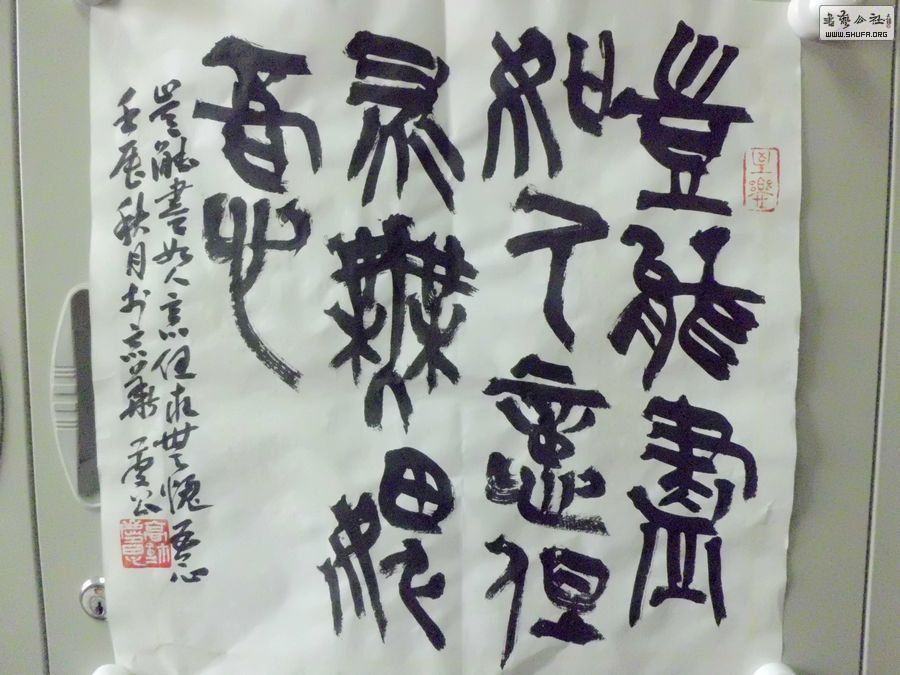 豈能盡
如人意但
求無愧
吾心
豈能盡如人意但求無愧吾心
壬辰秋月於京華
至樂
書藝公社
WWW.SHUFA.ORG